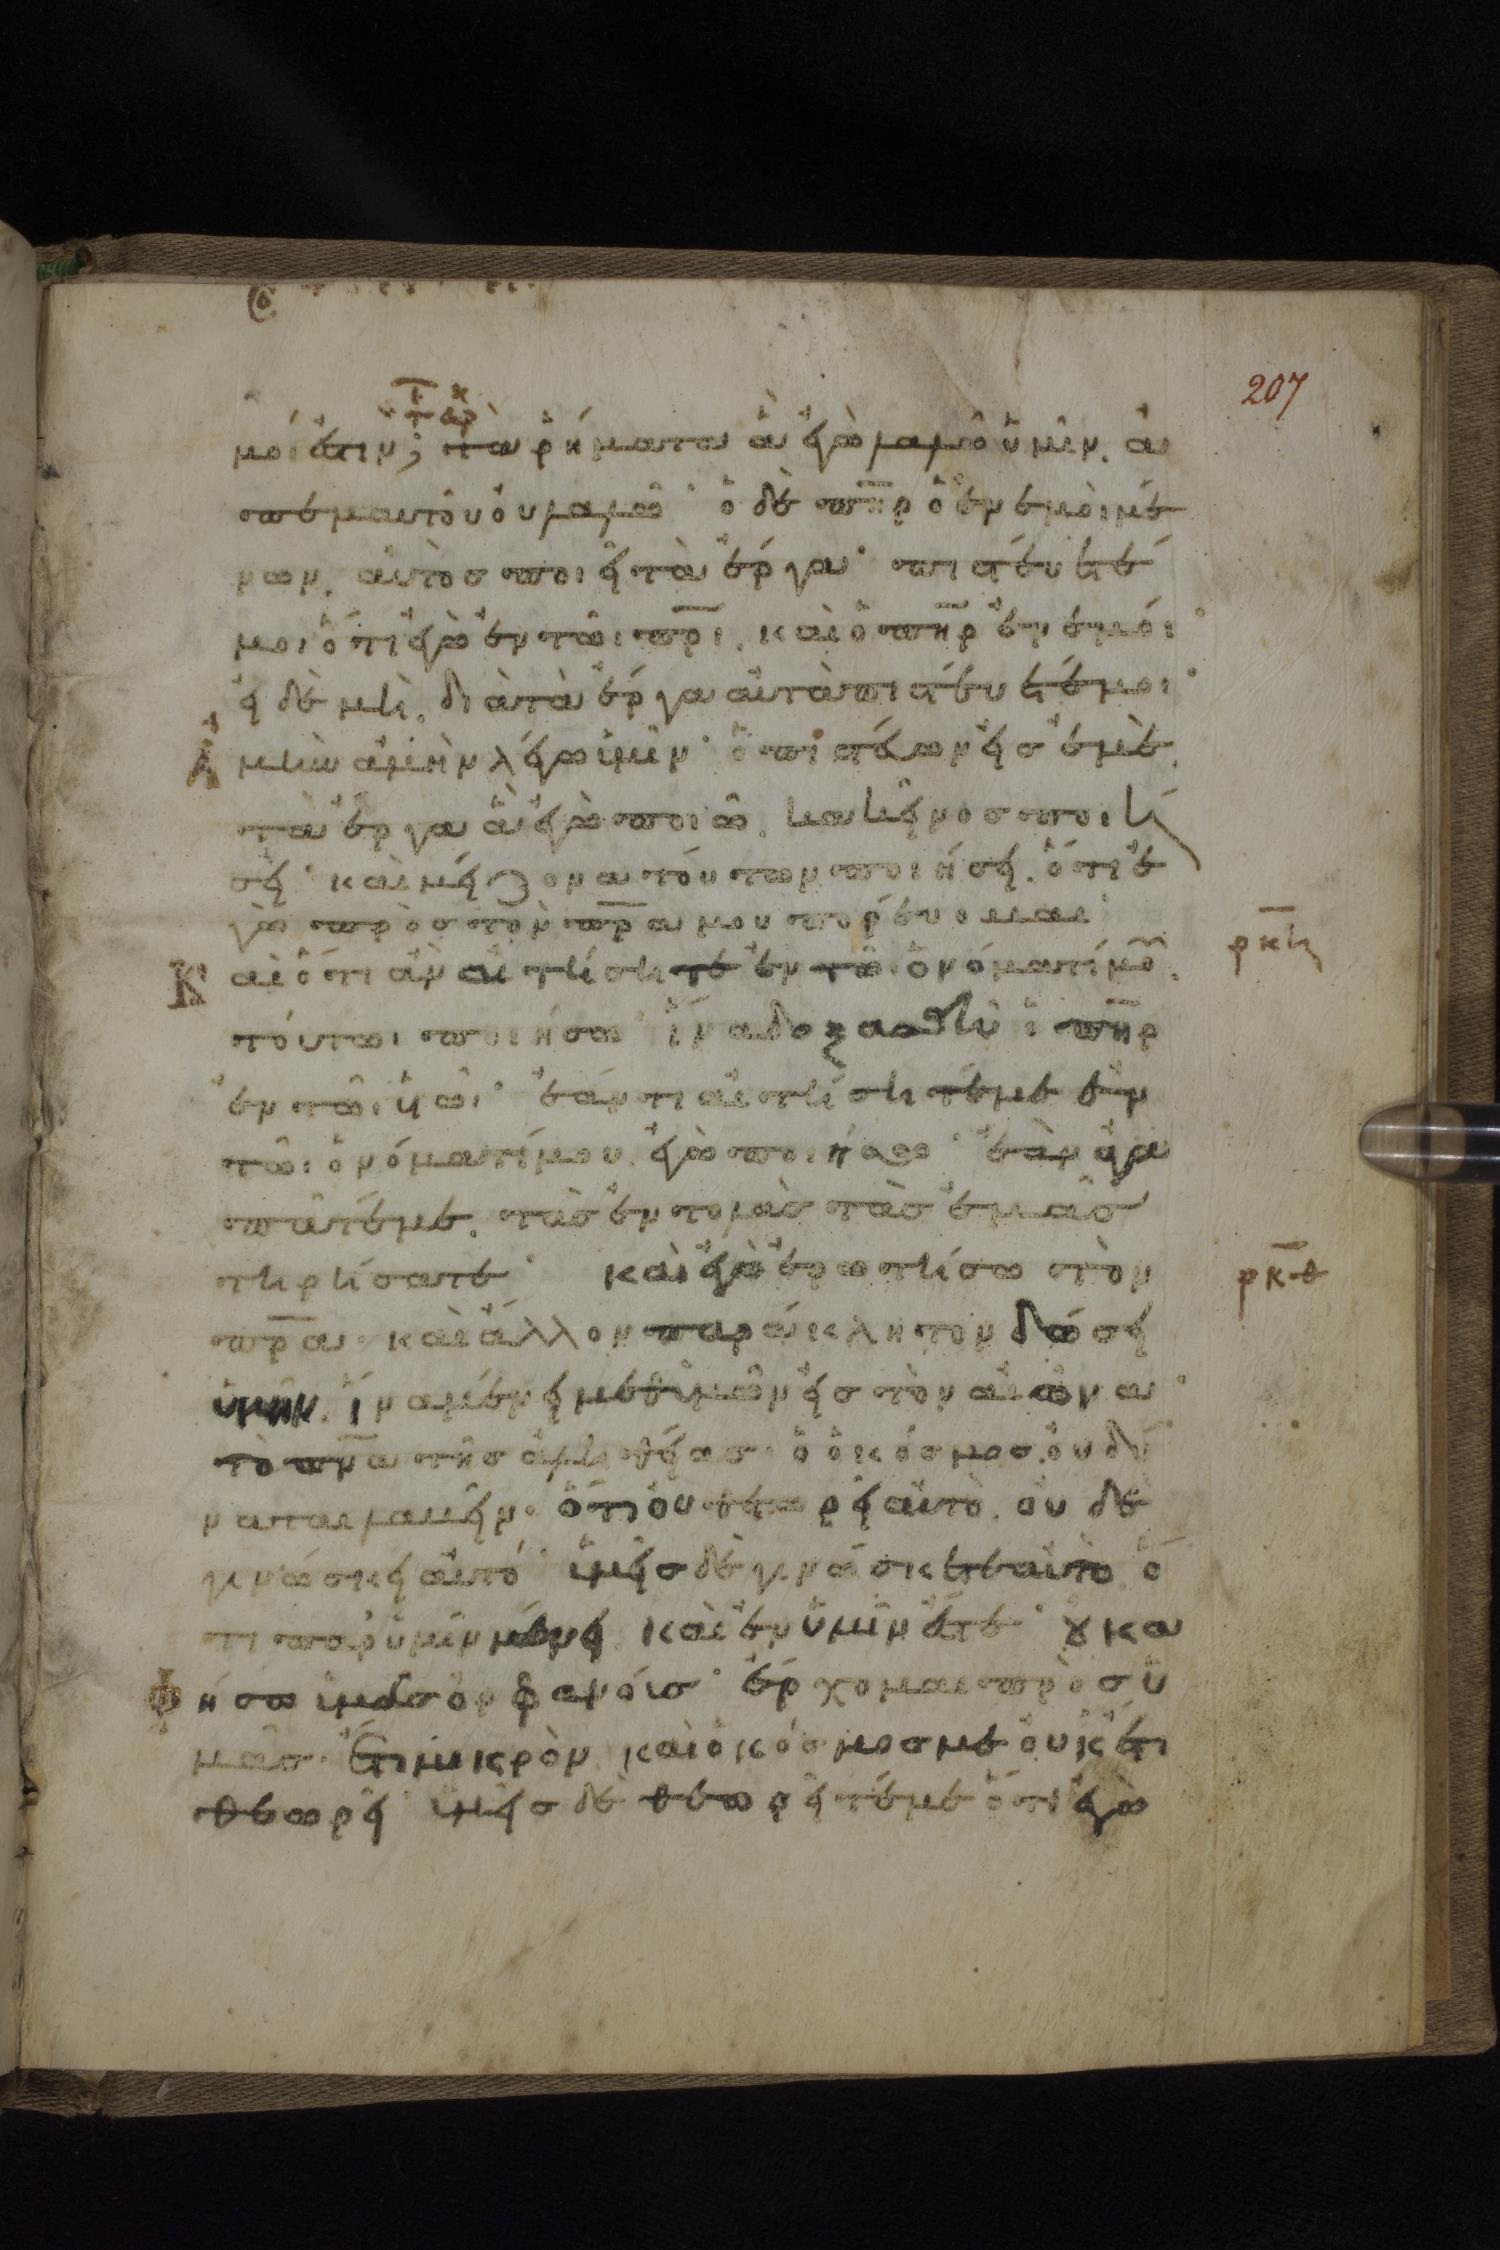 207
μοί ἐστιν; τὰ ῥήματα ἃ ἐγὼ λαλῶ ὑμῖν, ἀ
π ἐμαυτοῦ οὐ λαλῶ· ὁ δὲ π̅η̅ρ̅ ὁ ἐν ἐμοὶ μέ
νων, αὐτὸς ποιεῖ τὰ ἔργα· πιστεύετέ
μοι ὅτι ἐγὼ ἐν τῶι π̅ρ̅ι̅, καὶ ὁ π̅η̅ρ̅ ἐν ἐμοί·
εἰ δὲ μὴ, διὰ τὰ ἔργα αὐτὰ πιστεύετέ μοι·
Ἀμὴν ἀμὴν λέγω ὑμῖν· ὁ πιστεύων εἰς ἐμὲ,
τὰ ἔργα ἃ ἐγὼ ποιῶ, κακεῖνος ποιή
σει· καὶ μείζονα τούτων ποιήσει, ὅτι ἐ
γὼ πρὸς τὸν π̅ρ̅α̅ μου πορεύομαι·
Καὶ ὅτι ἂν αἰτήσητε ἐν τῶι ὀνόματί μου,
ρκη
τοῦτο ποιήσω· ἵνα δοξασθῆ ὁ π̅η̅ρ̅
ἐν τῶι υ̅ω̅ι̅· ἐάν τι αἰτήσητέ με ἐν
τῶι ὀνόματί μου, ἐγὼ ποιήσω· ἐὰν ἀγα
πᾶτέ με, τὰς ἐντολὰς τὰς ἐμὰς
τηρήσατε· καὶ ἐγὼ ἐρωτήσω τὸν
ρκθ
π̅ρ̅α̅· καὶ ἄλλον παράκλητον δώσει
ὑμῖν, ἵνα μένει μεθ ὑμῶν εἰς τὸν αἰῶνα·
τὸ π̅ν̅α̅ τῆς ἀληθείας· ὃ ὁ κόσμος οὐ δύ
ναται λαβεῖν· ὅτι οὐ θεωρεῖ αὐτὸ, οὐ δὲ
γινώσκει αὐτό· ὑμεῖς δὲ γινώσκετε αὐτὸ, ὅ
τι παρ ὑμῖν μένει, καὶ ἐν ὑμῖν ἐστέ· οὐκ ἀ
φήσω ὑμᾶς ὀρφανούς· ἔρχομαι πρὸς ὑ
μᾶς. Ἔτι μικρὸν, καὶ ὁ κόσμος με οὐκ ἔτι
θεωρεῖ· ὑμεῖς δὲ θεωρεῖτέ με ὅτι ἐγὼ